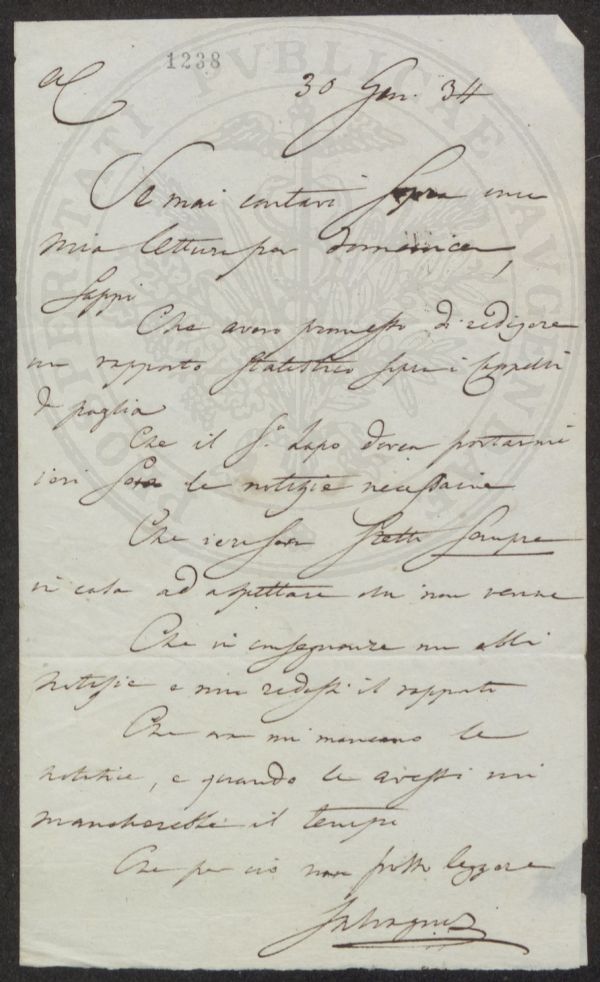 1238
AC
30 Gen. 34
Se mai contavi sopra una
mia lettura per domenica,
Sappi
Che avevo promesso di redigere
un rapporto statistico sopra i Cappelli
di paglia
Che il Sr. Lapo dovea portarmi
ieri sera le notizie necessarie
Che ieri sera stetti sempre
in casa ad aspettare ma non venne
Che in conseguenza non ebbi
notizie e non redassi il rapporto
Che ora mi mancano le
notizie, e quando le avessi mi
mancherebbe il tempo
Che per ciò non posso leggere
Salvagnoli
PROSPERITATI PVBLICAE AVGENDAE